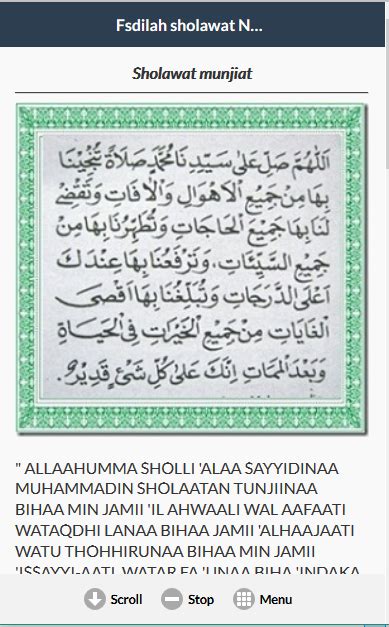 Fsdilah sholawat N...
Sholawat munjiat
اَللّٰهُمَّ صَلِّ عَلٰى سَيِّدِنَا مُحَمَّدٍ صَلَاةً تُنْجِيْنَا
بِهَا مِنْ جَمِيْعِ الْاَهْوَالِ وَالْاٰفَاتِ وَتَقْضِىْ
لَنَا بِهَا جَمِيْعَ الْحَاجَاتِ وَتُطَهِّرُنَا بِهَا مِنْ
جَمِيْعِ السَّيِّئَاتِ، وَتَرْفَعُنَا بِهَا عِنْدَكَ
اَعْلَى الدَّرَجَاتِ وَتُبَلِّغُنَا بِهَا اَقْصَى
الْغَايَاتِ مِنْ جَمِيْعِ الْخَيْرَاتِ فِى الْحَيَاةِ
وَبَعْدَ الْمَمَاتِ اِنَّكَ عَلٰى كُلِّ شَىْءٍ قَدِيْرٌ.
" ALLAAHUMMA SHOLLI 'ALAA SAYYIDINAA
MUHAMMADIN SHOLAATAN TUNJIINAA
BIHAA MIN JAMII 'IL AHWAALI WAL AAFAATI
WATAQDHI LANAA BIHAA JAMII 'ALHAAJAATI
WATU THOHHIRUNAA BIHAA MIN JAMII
'ISSAYYI-AATI WATAR FA 'UNAA BIHA 'INDAKA
Scroll Stop Menu